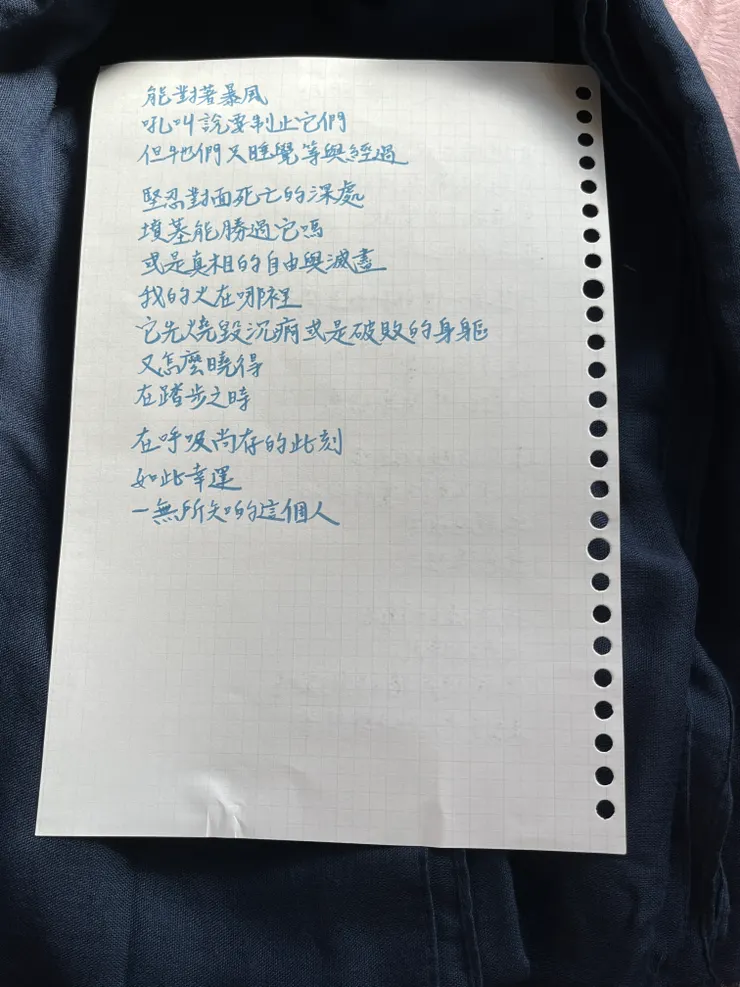 能對著暴風
吼叫說要制止它們
但牠們只睡覺等與經過
堅忍對面死亡的深處
墳墓能勝過它嗎
或是真相的自由與滅盡
我的火在哪裡
它先燒毀沉痾或是破敗的身軀
又怎麼曉得
在踏步之時
在呼吸尚存的此刻
如此幸運
一無所知的這個人